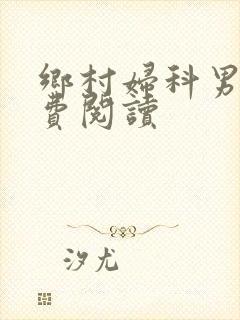 鄉村婦科男
費閱讀
汐尤